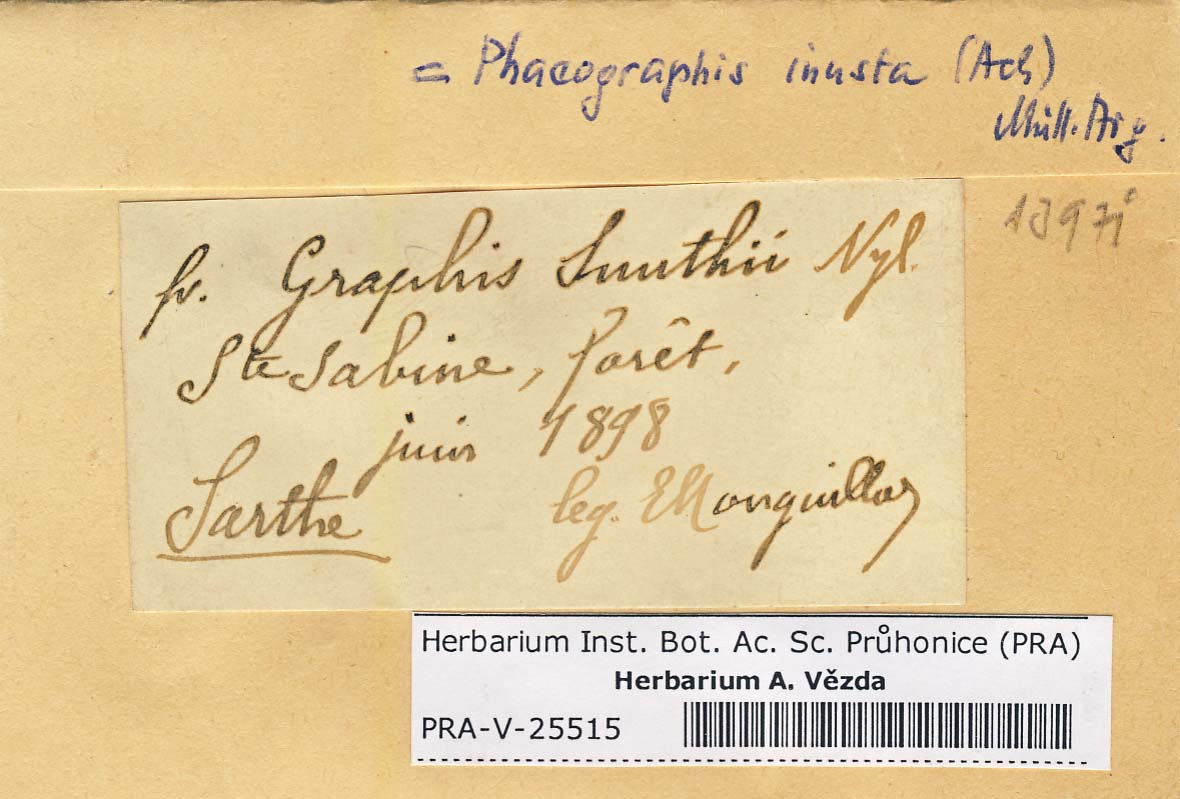 = Phaeographis inusta (Ach)
Müll. Arg.
fr. Graphis Smithii Nyl.
Ste Sabine, forêt,
juin 1898
Sarthe
leg. E Monguillon
Herbarium Inst. Bot. Ac. Sc. Průhonice (PRA)
Herbarium A. Vězda
PRA-V-25515